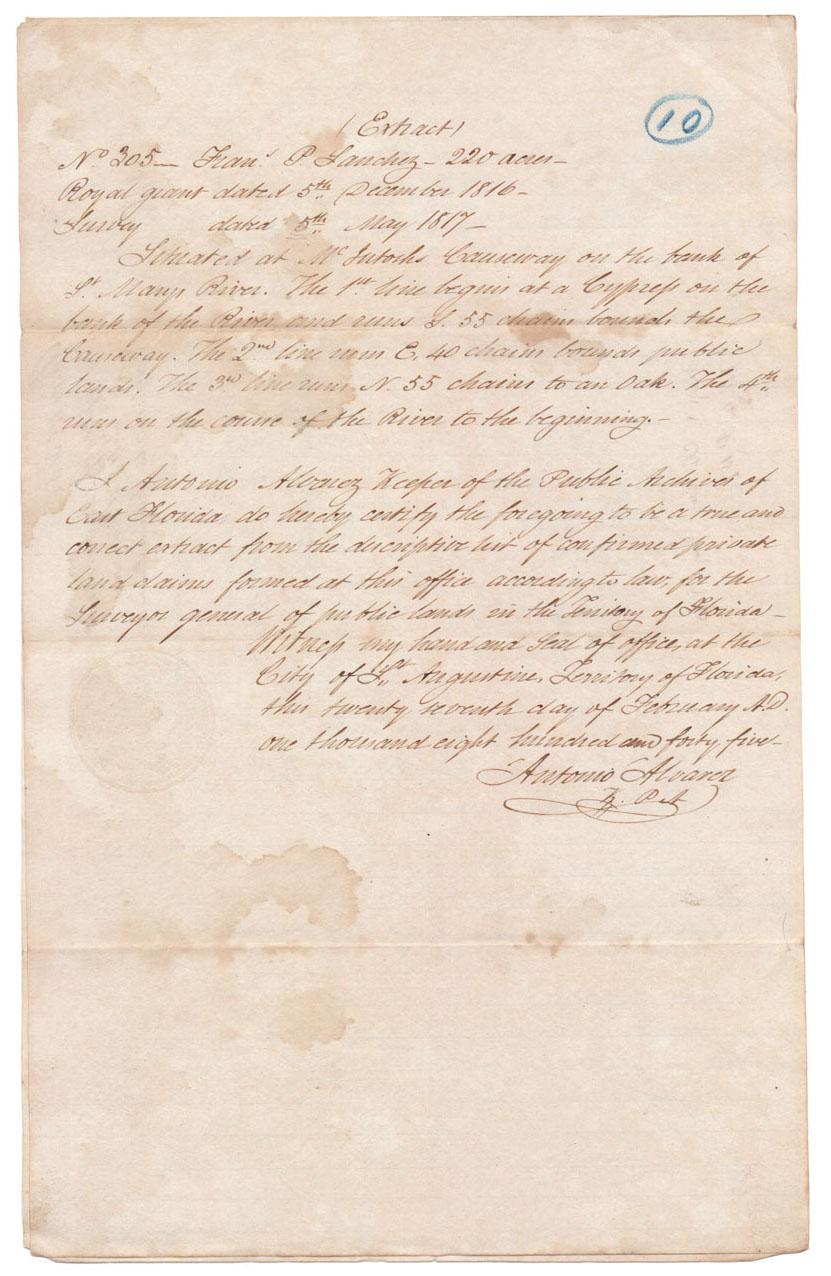 10
(Extract)
No 305 — Frans. P. Sanchez — 220 acres —
Royal grant dated 5th December 1816 —
Survey dated 5th May 1817 —
Situated at McIntoshs Causeway on the bank of
St Marys River. The 1st line begins at a Cypress on the
bank of the River and runs S. 55 chains bounds the
Causeway. The 2nd line runs E. 40 chains bounds public
lands. The 3rd line runs N. 55 chains to an Oak. The 4th
runs on the course of the River to the beginning. —
I Antonio Alvarez Keeper of the Public Archives of
East Florida, do hereby certify the foregoing to be a true and
correct extract from the descriptive list of confirmed private
land claims formed at this office according to law, for the
Surveyor general of public lands in the Territory of Florida —
Witness my hand and Seal of office, at the
City of St. Augustine, Territory of Florida,
this twenty seventh day of February A.D.
one thousand eight hundred and forty five —
Antonio Alvarez
K. P. A